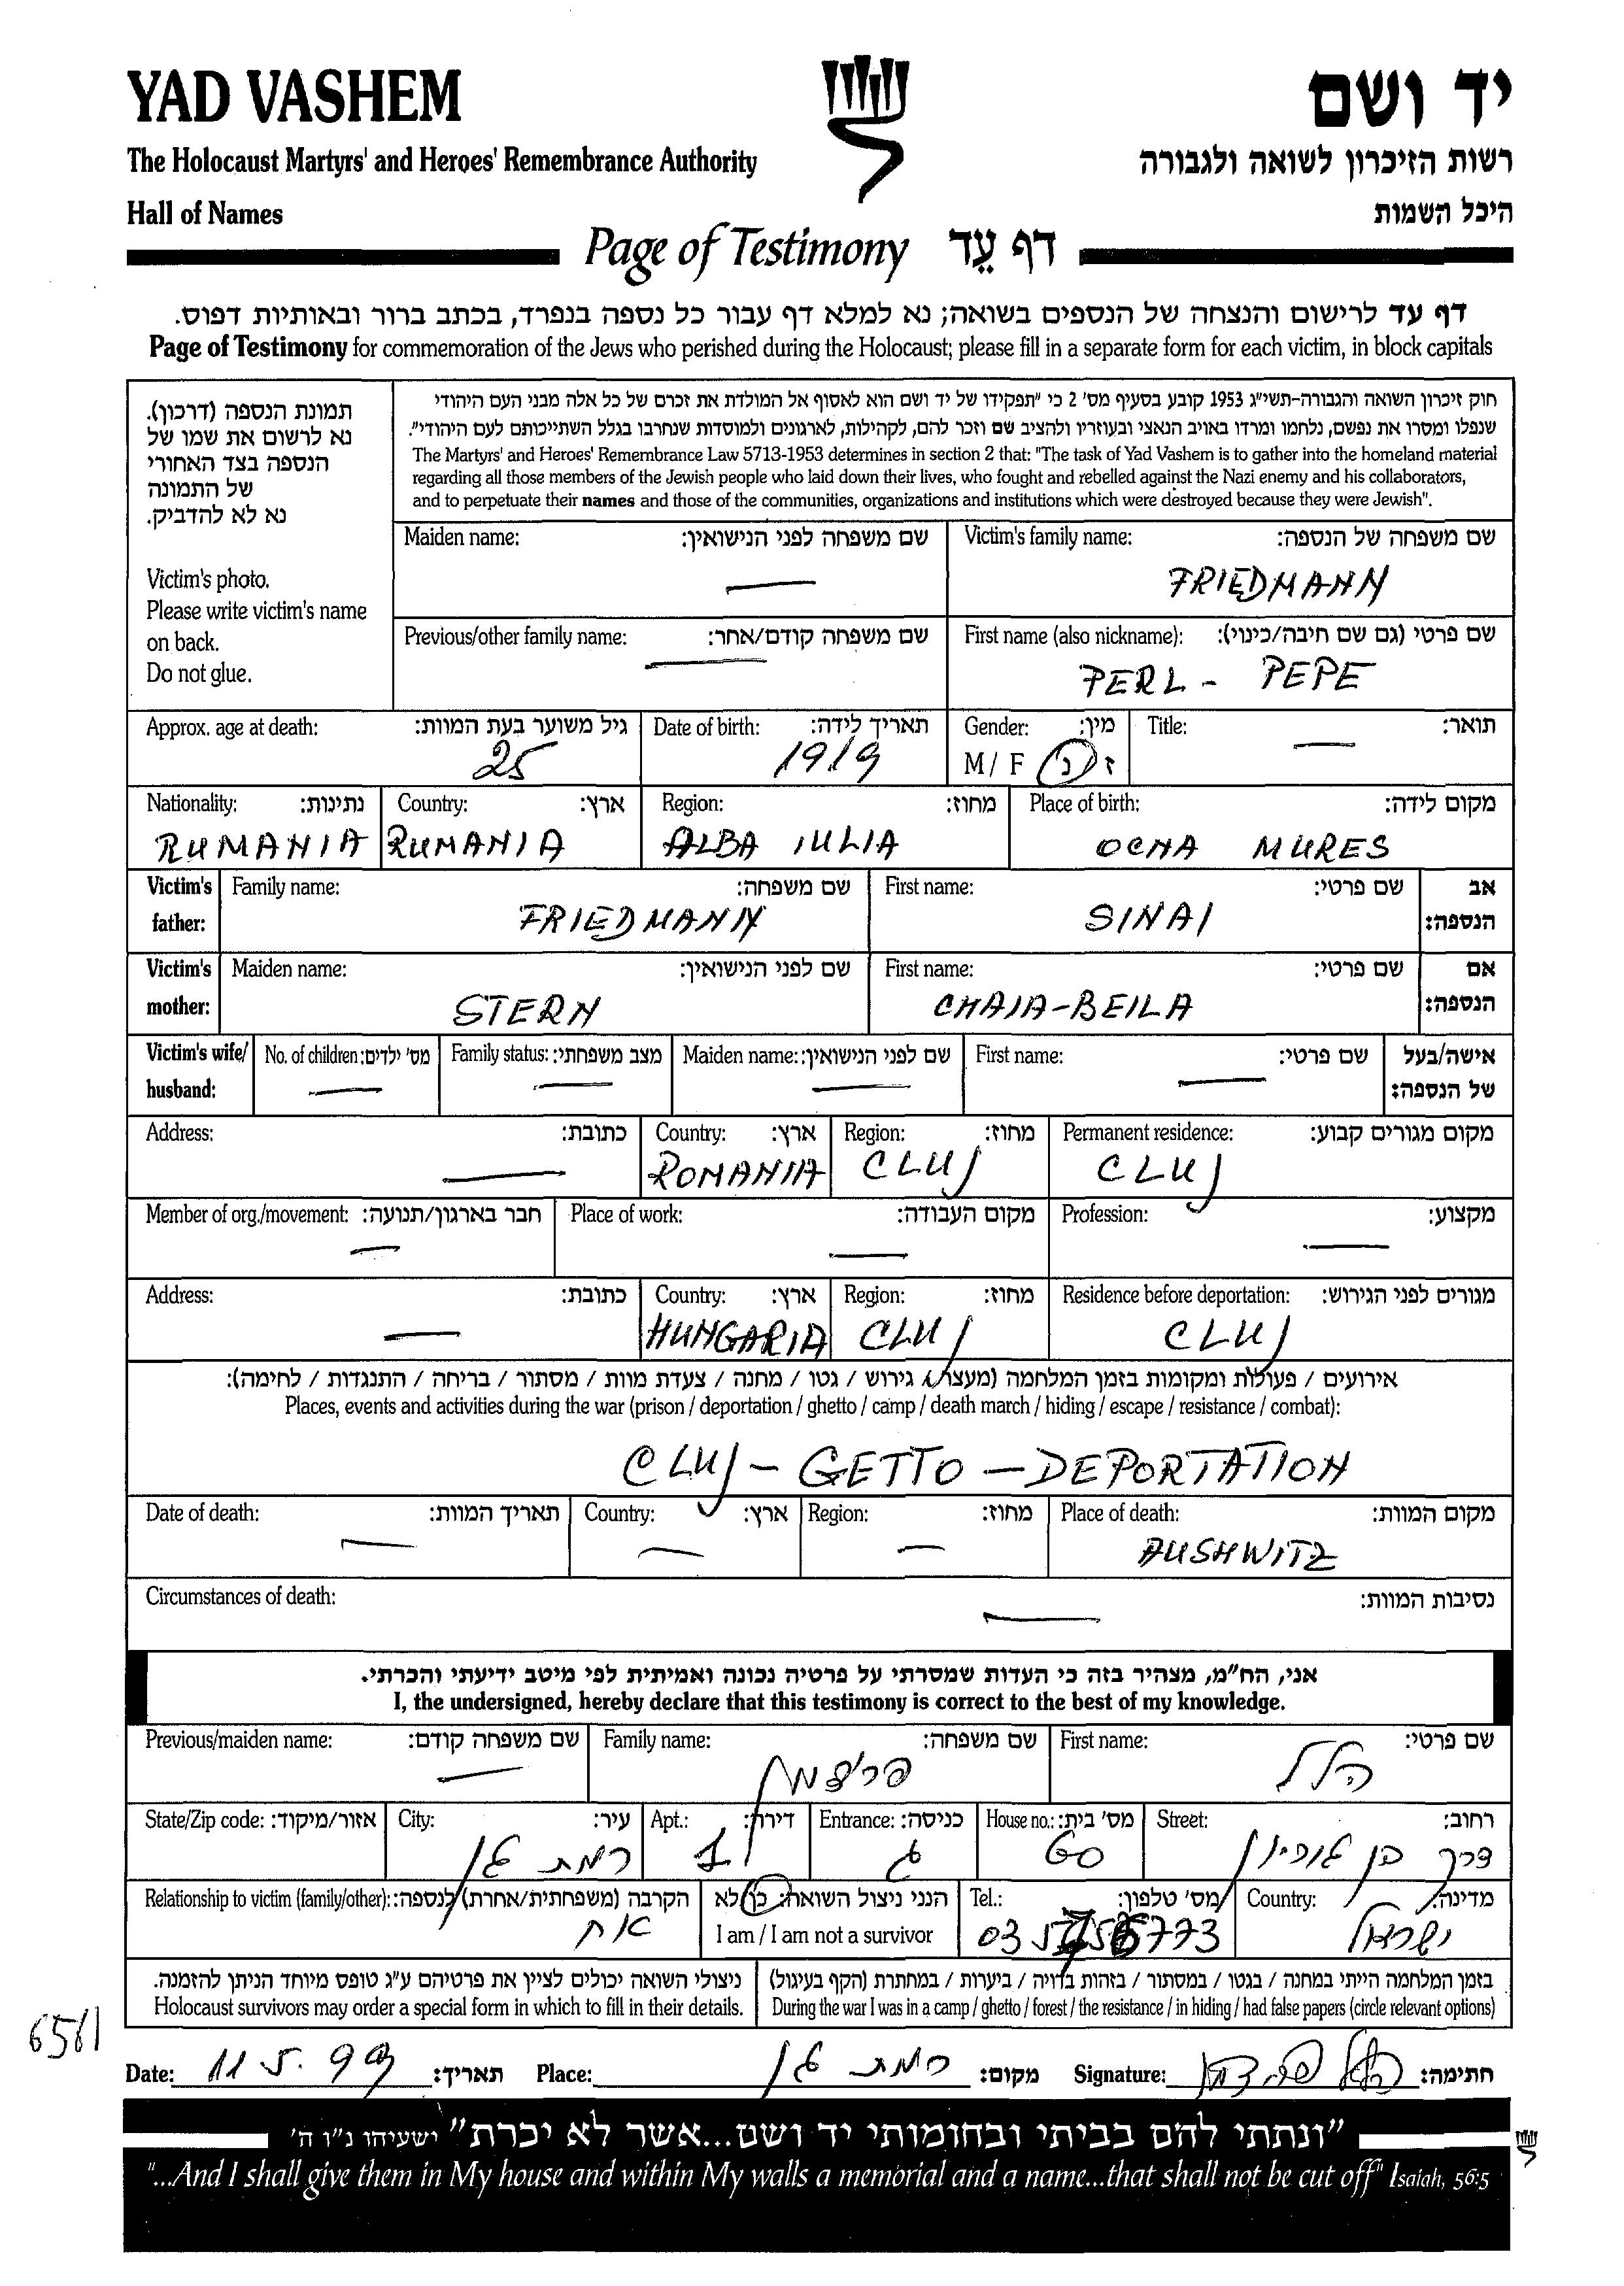 YAD VASHEM יד ושם
The Holocaust Martyrs' and Heroes' Remembrance Authority רשות הזיכרון לשואה ולגבורה
Hall of Names היכל השמות
Page of Testimony דף עֵד
דף עד לרישום והנצחה של הנספים בשואה; נא למלא דף עבור כל נספה בנפרד, בכתב ברור ובאותיות דפוס.
Page of Testimony for commemoration of the Jews who perished during the Holocaust; please fill in a separate form for each victim, in block capitals
תמונת הנספה (דרכון).
נא לרשום את שמו של
הנספה בצד האחורי
של התמונה
נא לא להדביק.
Victim's photo.
Please write victim's name
on back.
Do not glue.
חוק זיכרון השואה והגבורה-תשי״ג 1953 קובע בסעיף מס׳ 2 כי ״תפקידו של יד ושם הוא לאסוף אל המולדת את זכרם של כל אלה מבני העם היהודי
שנפלו ומסרו את נפשם, נלחמו ומרדו באויב הנאצי ובעוזריו ולהציב שם וזכר להם, לקהילות, לארגונים ולמוסדות שנחרבו בגלל השתייכותם לעם היהודי״.
The Martyrs' and Heroes' Remembrance Law 5713-1953 determines in section 2 that: "The task of Yad Vashem is to gather into the homeland material
regarding all those members of the Jewish people who laid down their lives, who fought and rebelled against the Nazi enemy and his collaborators,
and to perpetuate their names and those of the communities, organizations and institutions which were destroyed because they were Jewish".
Maiden name: שם משפחה לפני הנישואין: Victim's family name: שם משפחה של הנספה:
— FRIEDMANN
Previous/other family name: שם משפחה קודם/אחר: First name (also nickname): שם פרטי (גם שם חיבה/כינוי):
— PERL - PEPE
Approx. age at death: גיל משוער בעת המוות: Date of birth: תאריך לידה: Gender: מין: Title: תואר:
25 1919 M / F ז / נ —
Nationality: נתינות: Country: ארץ: Region: מחוז: Place of birth: מקום לידה:
RUMANIA RUMANIA ALBA IULIA OCNA MURES
Victim's father: Family name: שם משפחה: First name: שם פרטי: אב הנספה:
FRIEDMANN SINAI
Victim's mother: Maiden name: שם לפני הנישואין: First name: שם פרטי: אם הנספה:
STERN CHAIA-BEILA
Victim's wife/ husband: No. of children: מס׳ ילדים: Family status: מצב משפחתי: Maiden name: שם לפני הנישואין: First name: שם פרטי: אישה/בעל של הנספה:
— — — —
Address: כתובת: Country: ארץ: Region: מחוז: Permanent residence: מקום מגורים קבוע:
— ROMANIA CLUJ CLUJ
Member of org./movement: חבר בארגון/תנועה: Place of work: מקום העבודה: Profession: מקצוע:
— — —
Address: כתובת: Country: ארץ: Region: מחוז: Residence before deportation: מגורים לפני הגירוש:
— HUNGARIA CLUJ CLUJ
אירועים / פעולות ומקומות בזמן המלחמה (מעצר / גירוש / גטו / מחנה / צעדת מוות / מסתור / בריחה / התנגדות / לחימה):
Places, events and activities during the war (prison / deportation / ghetto / camp / death march / hiding / escape / resistance / combat):
CLUJ - GETTO - DEPORTATION
Date of death: תאריך המוות: Country: ארץ: Region: מחוז: Place of death: מקום המוות:
— — — AUSHWITZ
Circumstances of death: נסיבות המוות:
—
אני, הח״מ, מצהיר בזה כי העדות שמסרתי על פרטיה נכונה ואמיתית לפי מיטב ידיעתי והכרתי.
I, the undersigned, hereby declare that this testimony is correct to the best of my knowledge.
Previous/maiden name: שם משפחה קודם: Family name: שם משפחה: First name: שם פרטי:
— הלל
State/Zip code: אזור/מיקוד: City: עיר: Apt.: דירה: Entrance: כניסה: House no.: מס׳ בית: Street: רחוב:
רמת גן 1 ג 60 דרך בן גוריון
Relationship to victim (family/other): הקרבה (משפחתית/אחרת) לנספה: הנני ניצול השואה: כן/לא Tel.: מס׳ טלפון: Country: מדינה:
אח I am / I am not a survivor 03 ישראל
ניצולי השואה יכולים לציין את פרטיהם ע״ג טופס מיוחד הניתן להזמנה. בזמן המלחמה הייתי במחנה / בגטו / במסתור / בזהות בדויה / ביערות / במחתרת (הקף בעיגול)
Holocaust survivors may order a special form in which to fill in their details. During the war I was in a camp / ghetto / forest / the resistance / in hiding / had false papers (circle relevant options)
6561
Date: 11 5. 99 תאריך: Place: רמת גן מקום: Signature: חתימה:
״ונתתי להם בביתי ובחומותי יד ושם...אשר לא יכרת״ ישעיהו נ״ו ה׳
"...And I shall give them in My house and within My walls a memorial and a name...that shall not be cut off" Isaiah, 56:5